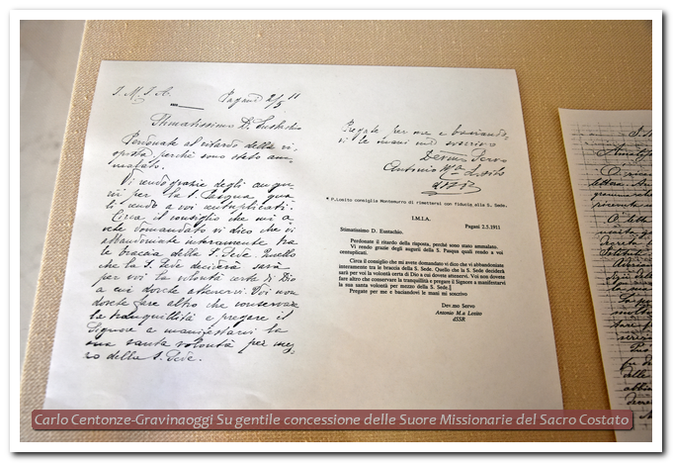 I. M. I. A. Pagani 2/5 11
Stimatissimo D. Eustachio
Perdonate il ritardo della ri-
sposta, perché sono stato am-
malato.
Vi rendo grazie degli augu-
rii per la S. Pasqua qua-
li rendo a voi centuplicati.
Circa il consiglio che mi a-
vete domandato vi dico che vi
abbandoniate interamente tra
le braccia della S. Sede. Quello
che la S. Sede deciderà sarà
per voi la volontà certa di Dio
a cui dovete attenervi. Voi non
dovete fare altro che conservare
la tranquillità e pregare il
Signore a manifestarvi la
sua santa volontà per mez-
zo della S. Sede.
Pregate per me e baciando-
vi le mani mi soscrivo
Dev.mo Servo
Antonio M.a Losito
¶ P.Losito consiglia Montemurro di rimettersi con fiducia alla S. Sede.
I.M.I.A.
Pagani 2.5.1911
Stimatissimo D. Eustachio.
Perdonate il ritardo della risposta, perché sono stato ammalato.
Vi rendo grazie degli augurii della S. Pasqua quali rendo a voi
centuplicati.
Circa il consiglio che mi avete domandato vi dico che vi abbandoniate
interamente tra le braccia della S. Sede. Quello che la S. Sede deciderà
sarà per voi la volontà certa di Dio a cui dovete attenervi. Voi non dovete
fare altro che conservare la tranquilità e pregare il Signore a manifestarvi
la sua santa volontà per mezzo della S. Sede.
Pregate per me e baciandovi le mani mi soscrivo
Dev.mo Servo
Antonio M.a Losito
dSSR
Carlo Centonze-Gravinaoggi Su gentile concessione delle Suore Missionarie del Sacro Costato